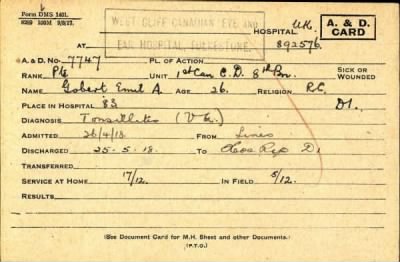 Form DMS 1401.
WEST CLIFF CANADIAN EYE AND
EAR HOSPITAL, FOLKESTONE.
HOSPITAL U.K.
A. & D.
CARD
AT 892576.
A. & D. No. 7747 PL. OF ACTION
RANK Pte UNIT 1st Can C.D. 8th Bn. SICK OR
WOUNDED
NAME Gobert Emil A. AGE 26. RELIGION R.C.
PLACE IN HOSPITAL 83 D1.
DIAGNOSIS Tonsillitis
ADMITTED 26/4/18. FROM Lines
DISCHARGED 25-5-18. TO D1
TRANSFERRED
SERVICE AT HOME 17/12. IN FIELD 5/12.
RESULTS
(See Document Card for M.H. Sheet and other Documents.)
(P.T.O.)